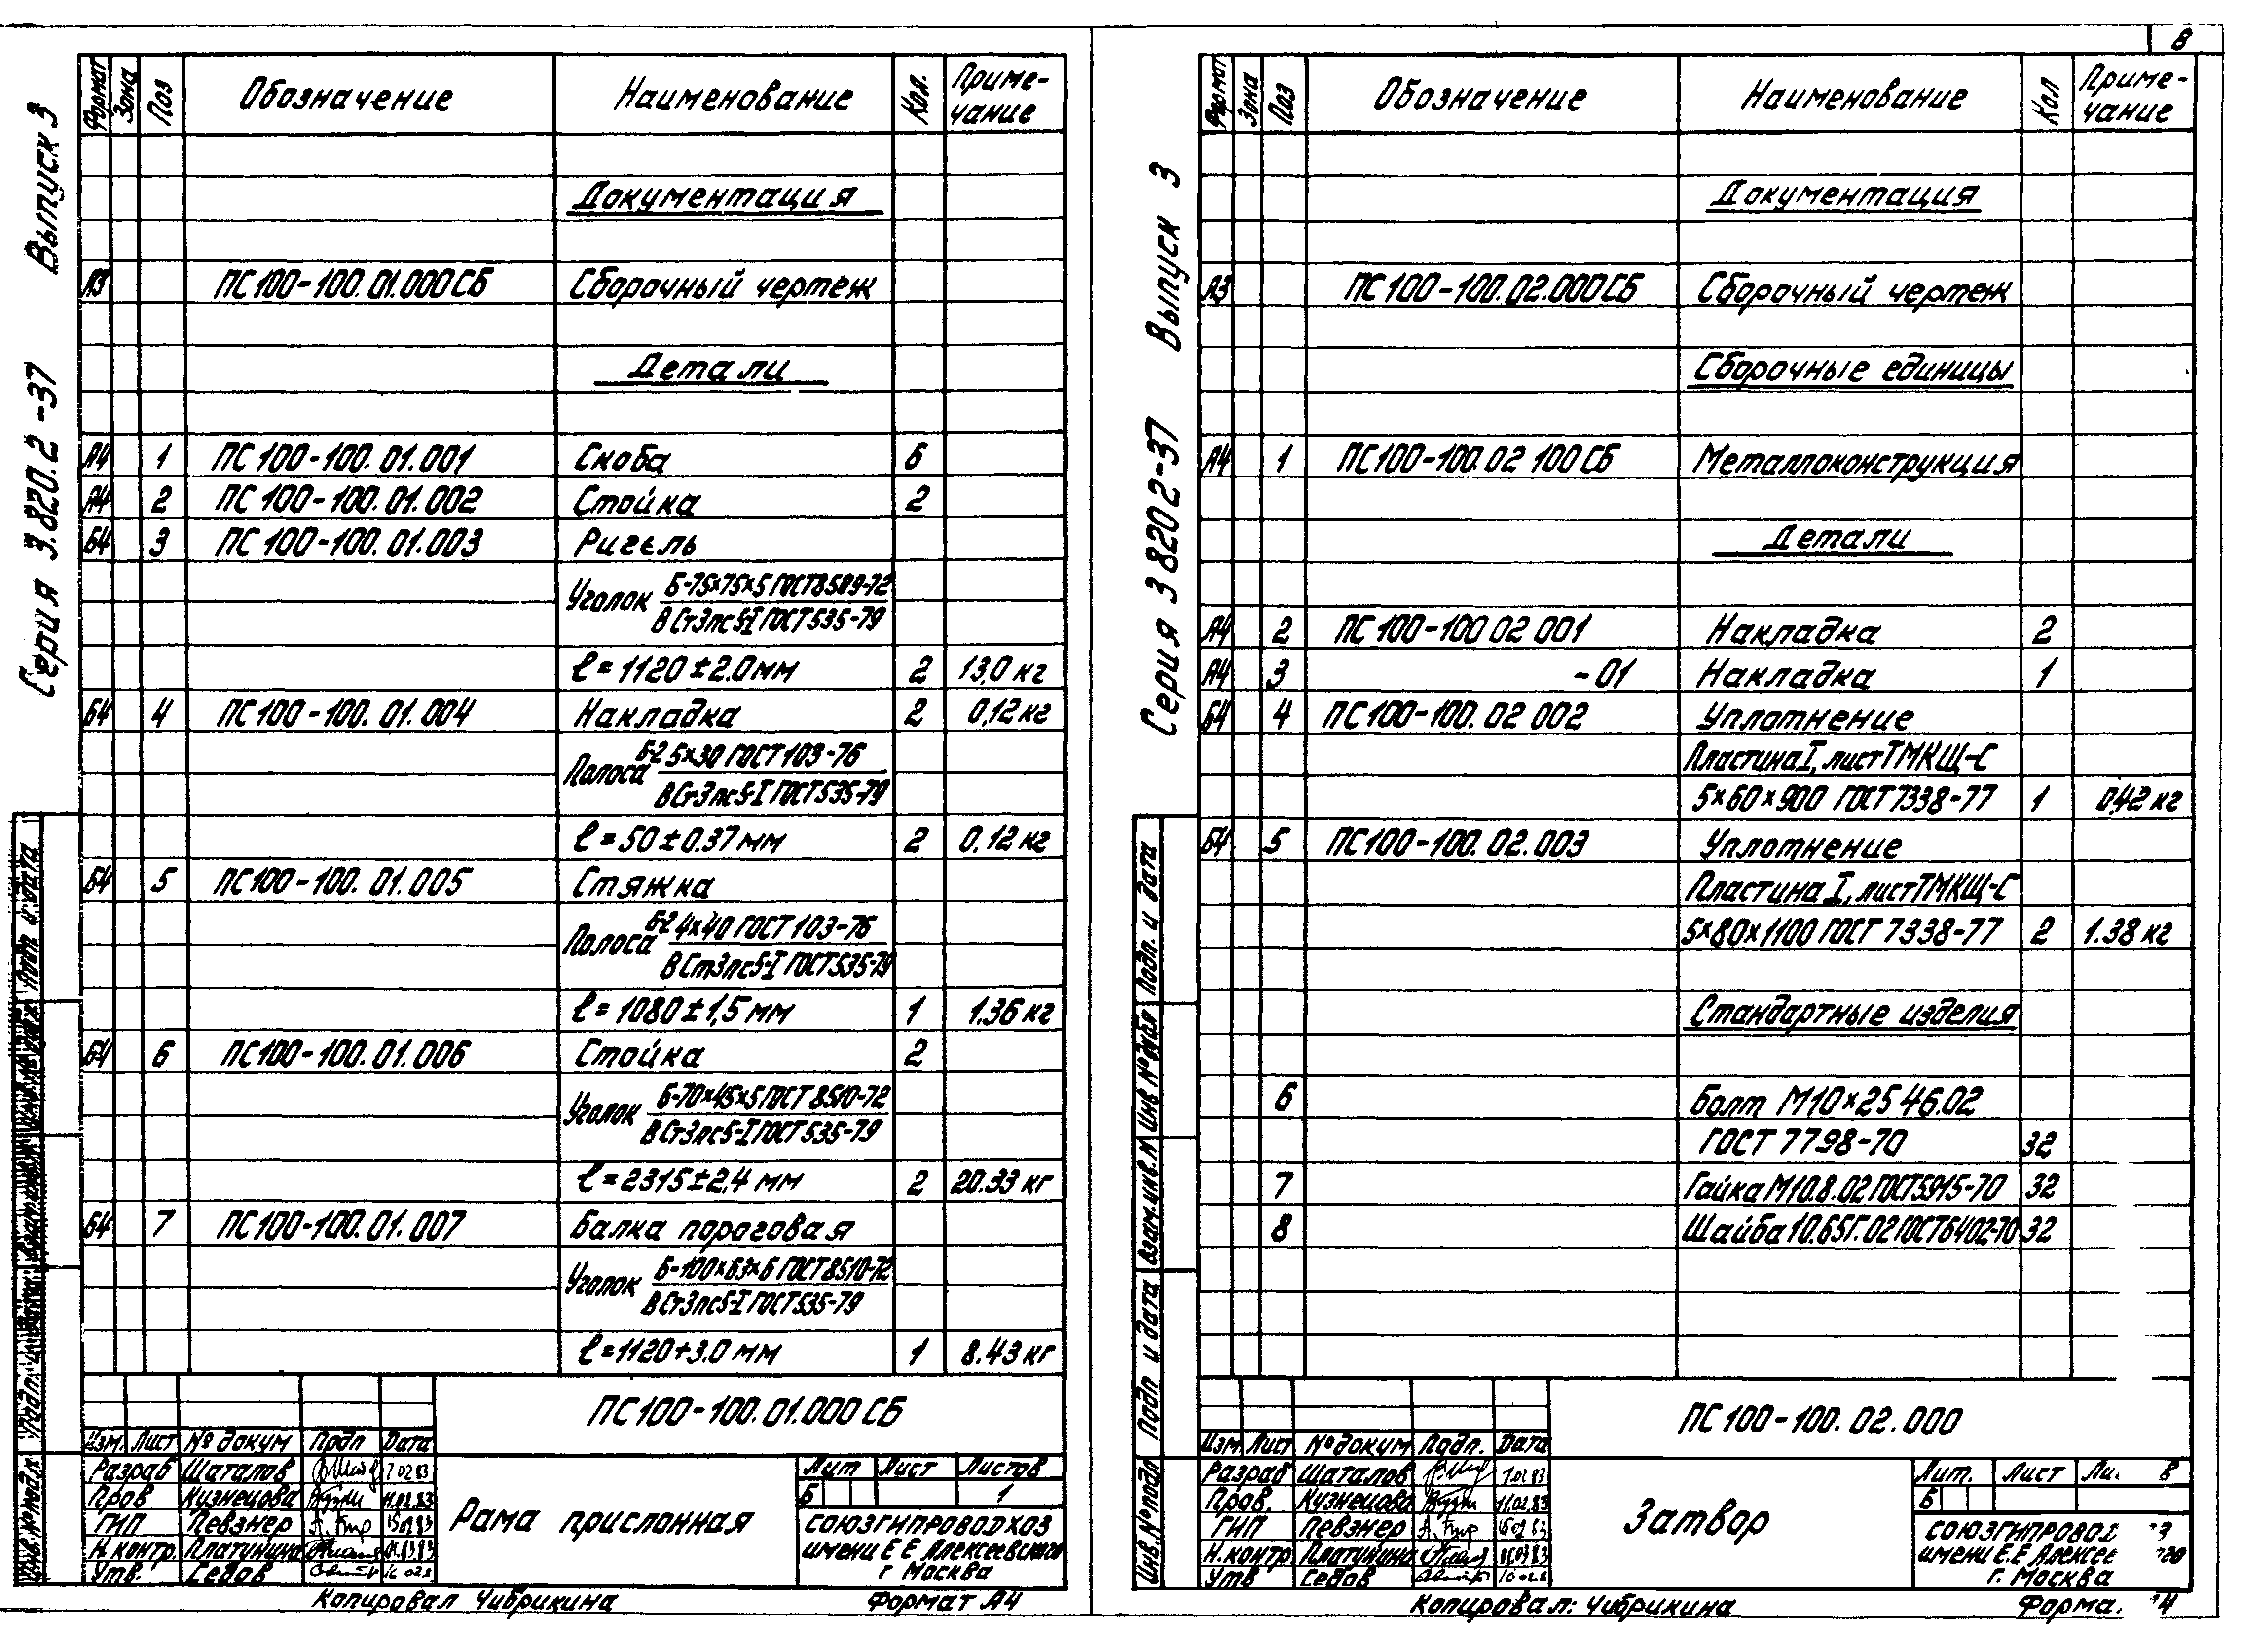 8
Серия 3.820.2-37 Выпуск 3
Формат Зона Поз Обозначение Наименование Кол. Приме-
чание
Документация
А3 ПС100-100.01.000СБ Сборочный чертеж
Детали
А4 1 ПС100-100.01.001 Скоба 6
А4 2 ПС100-100.01.002 Стойка 2
Б4 3 ПС100-100.01.003 Ригель
Уголок Б-75×75×5 ГОСТ 8509-72
ВСт3пс5-I ГОСТ 535-79
ℓ=1120±2.0мм 2 13,0 кг
Б4 4 ПС100-100.01.004 Накладка 2 0,12 кг
Полоса Б-2 5×30 ГОСТ 103-76
ВСт3пс5-I ГОСТ 535-79
ℓ=50±0.37 мм 2 0,12 кг
Б4 5 ПС100-100.01.005 Стяжка
Полоса Б-2 4×40 ГОСТ 103-76
ВСт3пс5-I ГОСТ 535-79
ℓ=1080±1,5 мм 1 1.36 кг
Б4 6 ПС100-100.01.006 Стойка 2
Уголок Б-70×45×5 ГОСТ 8510-72
ВСт3пс5-I ГОСТ 535-79
ℓ=2315±2,4 мм 2 20.33 кг
Б4 7 ПС100-100.01.007 Балка пороговая
Уголок Б-100×63×6 ГОСТ 8510-72
ВСт3пс5-I ГОСТ 535-79
ℓ=1120+3.0 мм 1 8.43 кг
ПС100-100.01.000СБ
Изм. Лист № докум Подп Дата
Разраб Шаталов 7.02.83
Пров Кузнецова 11.02.83
ГИП Певзнер 15.02.83
Н.контр. Платунина 01.03.83
Утв. Седов
Рама прислонная
Лит Лист Листов
Б 1
СОЮЗГИПРОВОДХОЗ
имени Е Е Алексеевского
г Москва
Копировал Чибрикина Формат А4
Инв.№подл Подп. и дата Взам.инв.№ Инв.№дубл Подп и дата
Серия 3 8202-37 Выпуск 3
Формат Зона Поз Обозначение Наименование Кол Приме-
чание
Документация
А3 ПС100-100.02.000СБ Сборочный чертеж
Сборочные единицы
А4 1 ПС100-100.02 100СБ Металлоконструкция
Детали
А4 2 ПС100-100 02 001 Накладка 2
А4 3 -01 Накладка 1
Б4 4 ПС100-100.02 002 Уплотнение
Пластина I, лист ТМКЩ-С
5×60×900 ГОСТ 7338-77 1 0,42 кг
Б4 5 ПС100-100.02.003 Уплотнение
Пластина I, лист ТМКЩ-С
5×80×1100 ГОСТ 7338-77 2 1.38 кг
Стандартные изделия
6 Болт М10×25 46.02
ГОСТ 7798-70 32
7 Гайка М10.8.02 ГОСТ 5915-70 32
8 Шайба 10.65Г.02 ГОСТ 6402-70 32
ПС100-100.02.000
Изм Лист №докум Подп. Дата
Разраб Шаталов 7.02.83
Пров. Кузнецова 11.02.83
ГИП Певзнер
Н.контр Платунина 01.03.83
Утв Седов
Затвор
Лит. Лист Ли в
Б
СОЮЗГИПРОВОД з
имени Е.Е Алексее го
г. Москва
Копировал: Чибрикина Форма. 4
Инв.№подл Подп и дата Взам.инв.№ Инв №дубл Подп. и дата